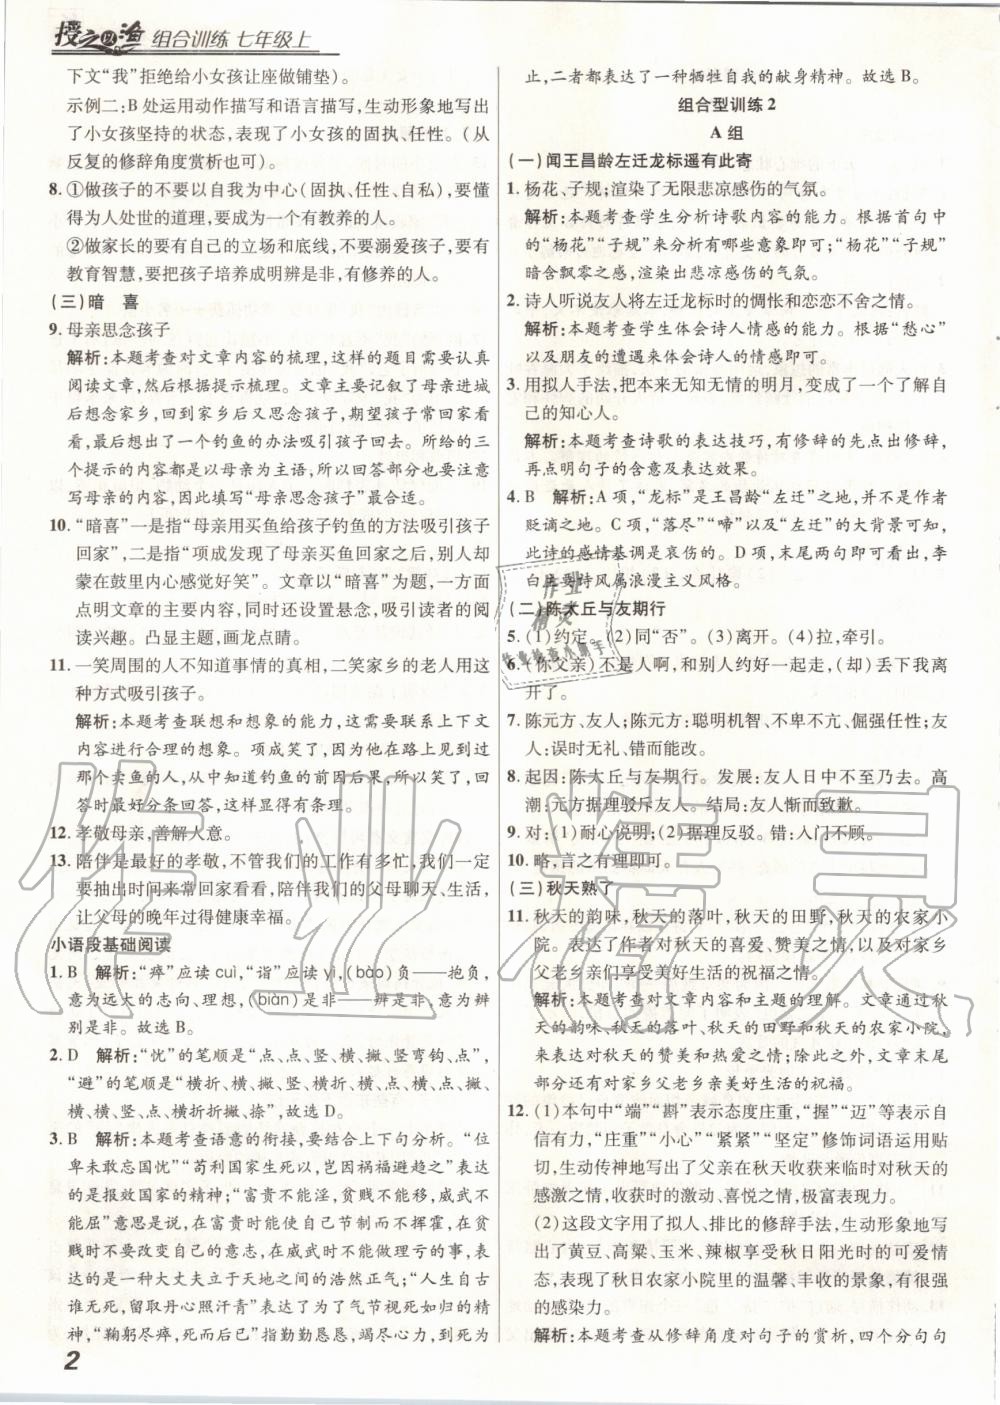 授之以渔 组合训练 七年级上
下文“我”拒绝给小女孩让座做铺垫)。
示例二:B处运用动作描写和语言描写,生动形象地写出
了小女孩坚持的状态,表现了小女孩的固执、任性。(从
反复的修辞角度赏析也可)。
8. ①做孩子的不要以自我为中心(固执、任性、自私),要懂
得为人处世的道理,要成为一个有教养的人。
②做家长的要有自己的立场和底线,不要溺爱孩子,要有
教育智慧,要把孩子培养成明辨是非,有修养的人。
(三)暗 喜
9. 母亲思念孩子
解析:本题考查对文章内容的梳理,这样的题目需要认真
阅读文章,然后根据提示梳理。文章主要记叙了母亲进城
后想念家乡,回到家乡后又思念孩子,期望孩子常回家看
看,最后想出了一个钓鱼的办法吸引孩子回去。所给的三
个提示的内容都是以母亲为主语,所以回答部分也要注意
写母亲的内容,因此填写“母亲思念孩子”最合适。
10. “暗喜”一是指“母亲用买鱼给孩子钓鱼的方法吸引孩子
回家”,二是指“项成发现了母亲买鱼回家之后,别人却
蒙在鼓里内心感觉好笑”。文章以“暗喜”为题,一方面
点明文章的主要内容,同时还设置悬念,吸引读者的阅
读兴趣。凸显主题,画龙点睛。
11. 一笑周围的人不知道事情的真相,二笑家乡的老人用这
种方式吸引孩子。
解析:本题考查联想和想象的能力,这需要联系上下文
内容进行合理的想象。项成笑了,是因为他在路上见到
那个卖鱼的人,从中知道钓鱼的前因后果,所以笑了,回
答时最好分条回答,这样显得有条理。
12. 孝敬母亲,善解人意。
13. 陪伴是最好的孝敬,不管我们的工作有多忙,我们一定
要抽出时间来常回家看看,陪伴我们的父母聊天、生活,
让父母的晚年过得健康幸福。
小语段基础阅读
1. B 解析:“瘁”应读 cuì,“诣”应读 yì,(bào)负——抱负,
意为远大的志向、理想,(biàn)是非——辨是非,意为辨
别是非。故选 B。
2. D 解析:“忧”的笔顺是“点、点、竖、横、撇、竖弯钩、点”,
“避”的笔顺是“横折、横、撇、竖、横折、横、点、横、点、撇、
横、横、竖、点、横折折撇、捺”,故选 D。
3. B 解析:本题考查语意的衔接,要结合上下句分析。“位
卑未敢忘国忧”“苟利国家生死以,岂因祸福避趋之”表达
的是报效国家的精神;“富贵不能淫,贫贱不能移,威武不
能屈”意思是说,在富贵时能使自己节制而不挥霍,在贫
贱时不要改变自己的意志,在威武时不能做理亏的事,表
达的是一种大丈夫立于天地之间的浩然正气;“人生自古
谁无死,留取丹心照汗青”表达了为了气节视死如归的精
神,“鞠躬尽瘁,死而后已”指勤勤恳恳,竭尽心力,到死为
2
止,二者都表达了一种牺牲自我的献身精神。故选 B。
组合型训练 2
A 组
(一)闻王昌龄左迁龙标遥有此寄
1. 杨花、子规;渲染了无限悲凉感伤的气氛。
解析:本题考查学生分析诗歌内容的能力。根据首句中
的“杨花”“子规”来分析有哪些意象即可;“杨花”“子规”
暗含飘零之感,渲染出感伤悲凉的气氛。
2. 诗人听说友人将左迁龙标时的惆怅和恋恋不舍之情。
解析:本题考查学生体会诗人情感的能力。根据“愁心”
以及朋友的遭遇来体会诗人的情感即可。
3. 用拟人手法,把本来无知无情的明月,变成了一个了解自
己的知心人。
解析:本题考查诗歌的表达技巧,有修辞的先点出修辞,
再点明句子的含意及表达效果。
4. B 解析:A 项,“龙标”是王昌龄“左迁”之地,并不是作者
贬谪之地。C 项,“落尽”“啼”以及“左迁”的大背景可知,
此诗的感情基调是哀伤的。D 项,末尾两句即可看出,李
白主要诗风属浪漫主义风格。
(二)陈太丘与友期行
5. (1)约定。(2)同“否”。(3)离开。(4)拉,牵引。
6. (你父亲)不是人啊,和别人约好一起走,(却)丢下我离
开了。
7. 陈元方、友人;陈元方:聪明机智、不卑不亢、倔强任性;友
人:误时无礼、错而能改。
8. 起因:陈太丘与友期行。发展:友人日中不至乃去。高
潮:元方据理驳斥友人。结局:友人惭而致歉。
9. 对:(1)耐心说明;(2)据理反驳。错:入门不顾。
10. 略,言之有理即可。
(三)秋天熟了
11. 秋天的韵味,秋天的落叶,秋天的田野,秋天的农家小
院。表达了作者对秋天的喜爱、赞美之情,以及对家乡
父老乡亲们享受美好生活的祝福之情。
解析:本题考查对文章内容和主题的理解。文章通过秋
天的韵味、秋天的落叶、秋天的田野和秋天的农家小院,
来表达对秋天的赞美和热爱之情;除此之外,文章末尾
部分还表达对家乡父老乡亲美好生活的祝福。
12. (1)本句中“端”“斟”表示态度庄重,“握”“迈”等表示自
信有力,“庄重”“小心”“紧紧”“坚定”修饰词语运用贴
切,生动传神地写出了父亲在秋天来临时对秋天的
感激之情,收获时的激动、喜悦之情,极富表现力。
(2)这段文字用了拟人、排比的修辞手法,生动形象地写
出了黄豆、高粱、玉米、辣椒享受秋日阳光时的可爱情
态,表现了秋日农家小院里的温馨、丰收的景象,有很强
的感染力。
解析:本题考查从修辞角度对句子的赏析,四个分句句
作业精灵